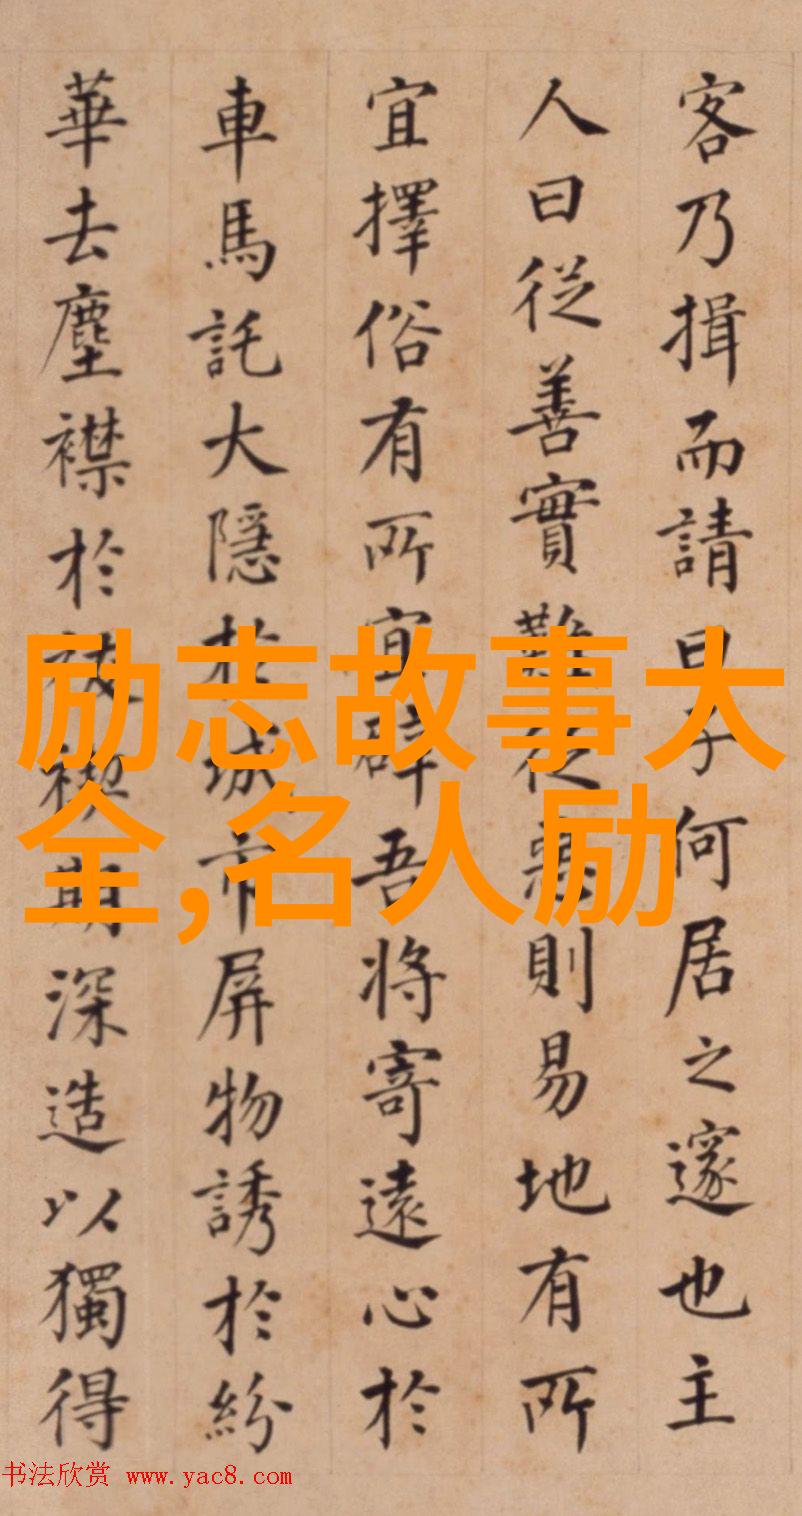 客乃揖而請曰子何居之邃也主
人曰從善實難從惡則易地有所
宜擇俗有所宜辟吾将寄遠心於
車馬託大隱於城市屏物誘於紛
華去塵襟於祓禊期深造以獨得
励志故事大
全,名人励
书法欣赏 www.yac8.com